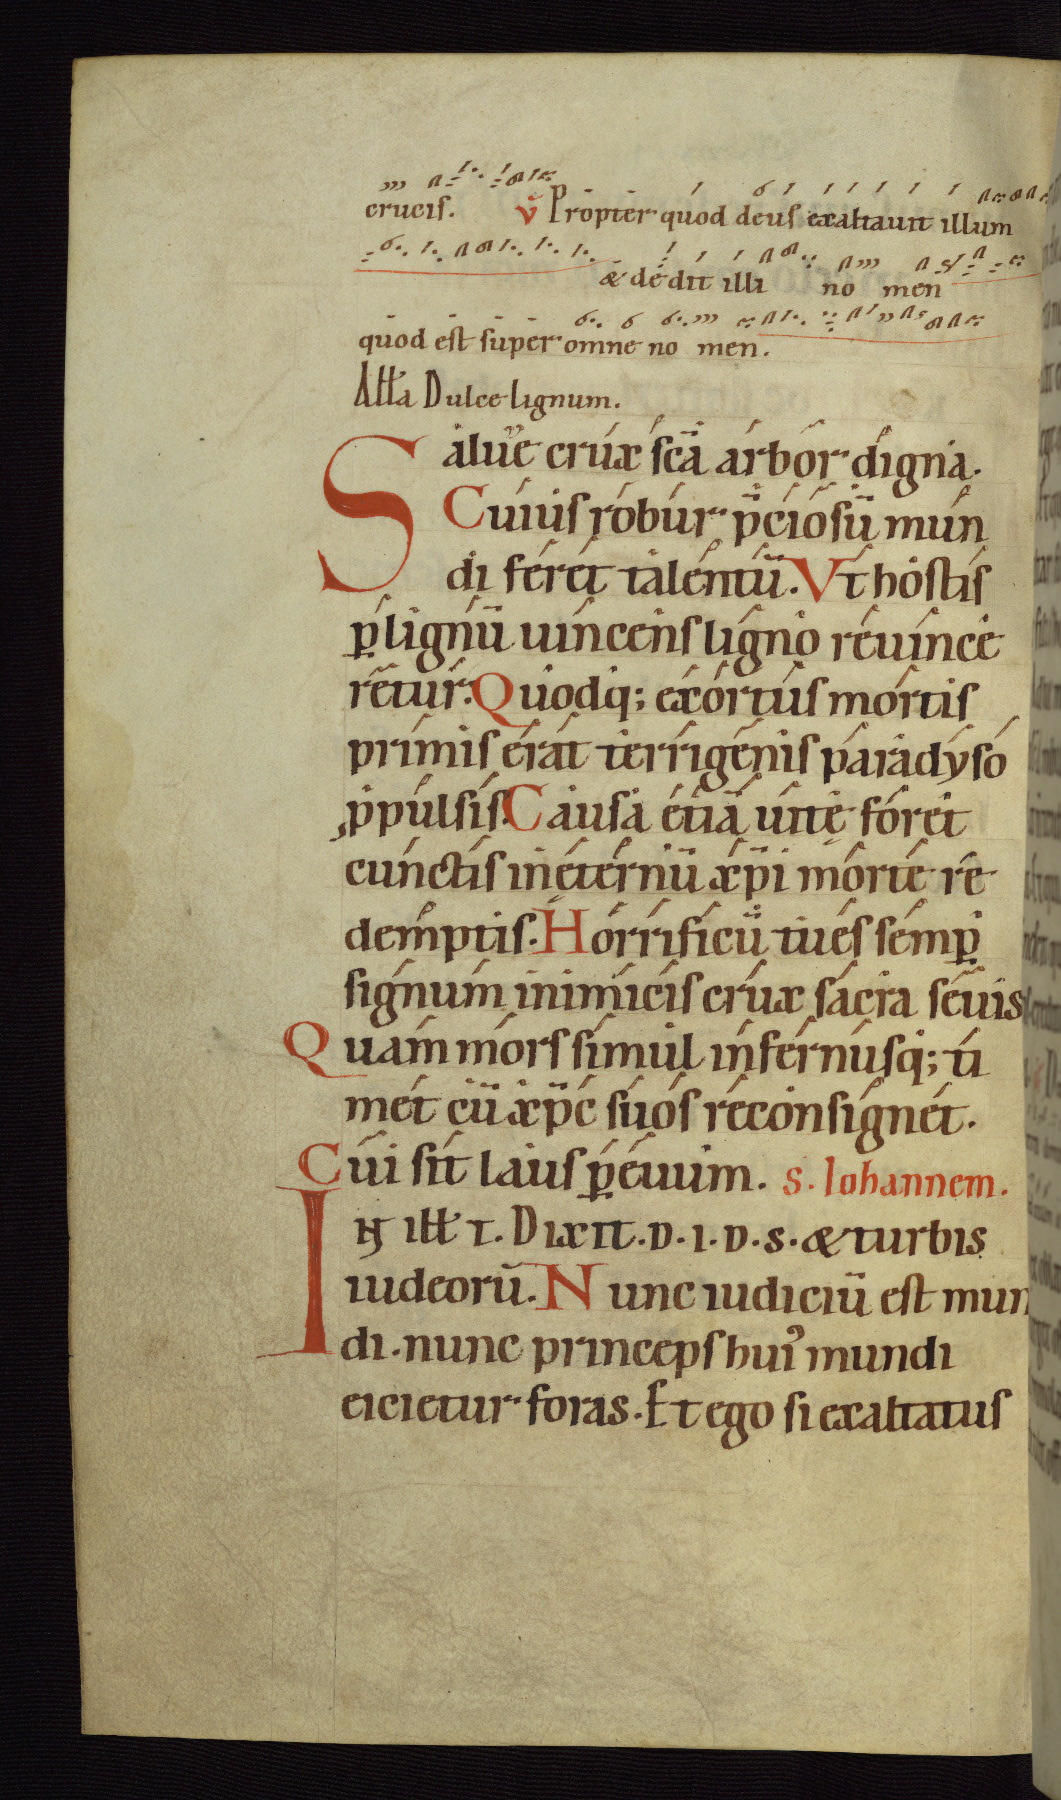 crucis. v̄ Propter quod deus exaltauit illum
& dedit illi no men
quod est super omne no men.
Alła Dulce lignum.
Salue crux sc̄a arbor digna.
Cuius robur p̄ciosū mun
di feret talentū. Vt hostis
ꝑ lignū uincens ligno reuince
retur. Quodq; exortus mortis
primis erat terrigenis paradyso
ꝓpulsis. Causa etiā uitę foret
cunctis in ęternū xp̄i morte re
demptis. Horrificū tu es semꝑ
signum inimicis crux sacra seuis
Quam mors simul infernusq; ti
met cū xp̄c suos reconsignet.
Cui sit laus ꝑ ęuum. S. Iohannem.
IN illł T. Dixit .D.I.D.S. & turbis
iudeorū. Nunc iudiciū est mun
di. nunc princeps huiꝰ mundi
eicietur foras. Et ego si exaltatus